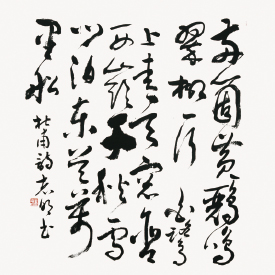 兩箇黃鸝鳴
翠柳一行
白鷺
上青天窗含
西嶺千秋雪
門泊東吳萬
里船
杜甫詩 書